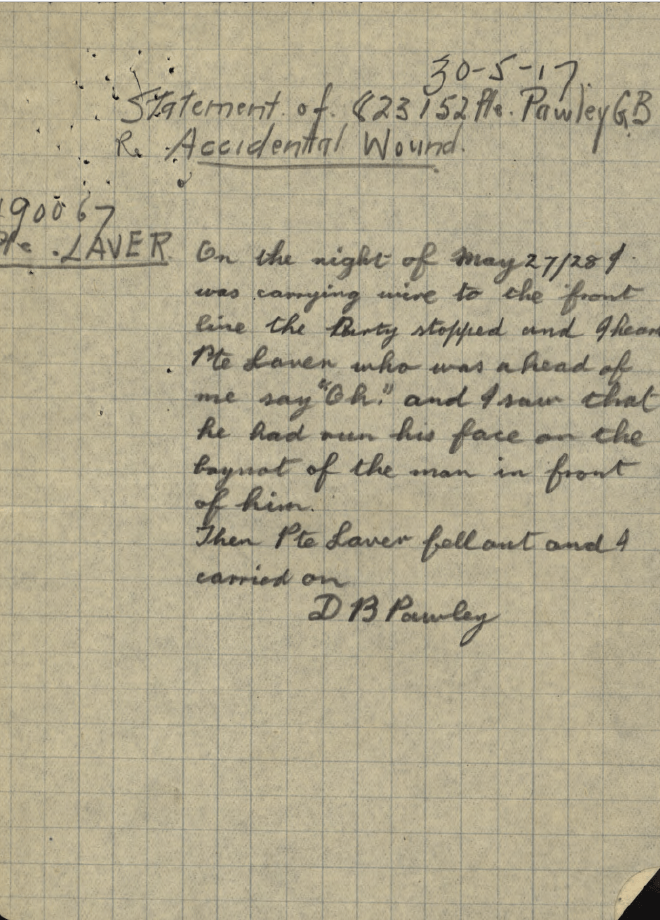 30-5-17
Statement of 823152 Pte. Pawley G B
R. Accidental Wound.
190067
Pte. LAVER
On the night of May 27/28 I
was carrying wire to the front
line the Party stopped and I hear
Pte Laver who was ahead of
me say "Oh." and I saw that
he had run his face on the
baynot of the man in front
of him.
Then Pte Laver fell out and I
carried on
D B Pawley